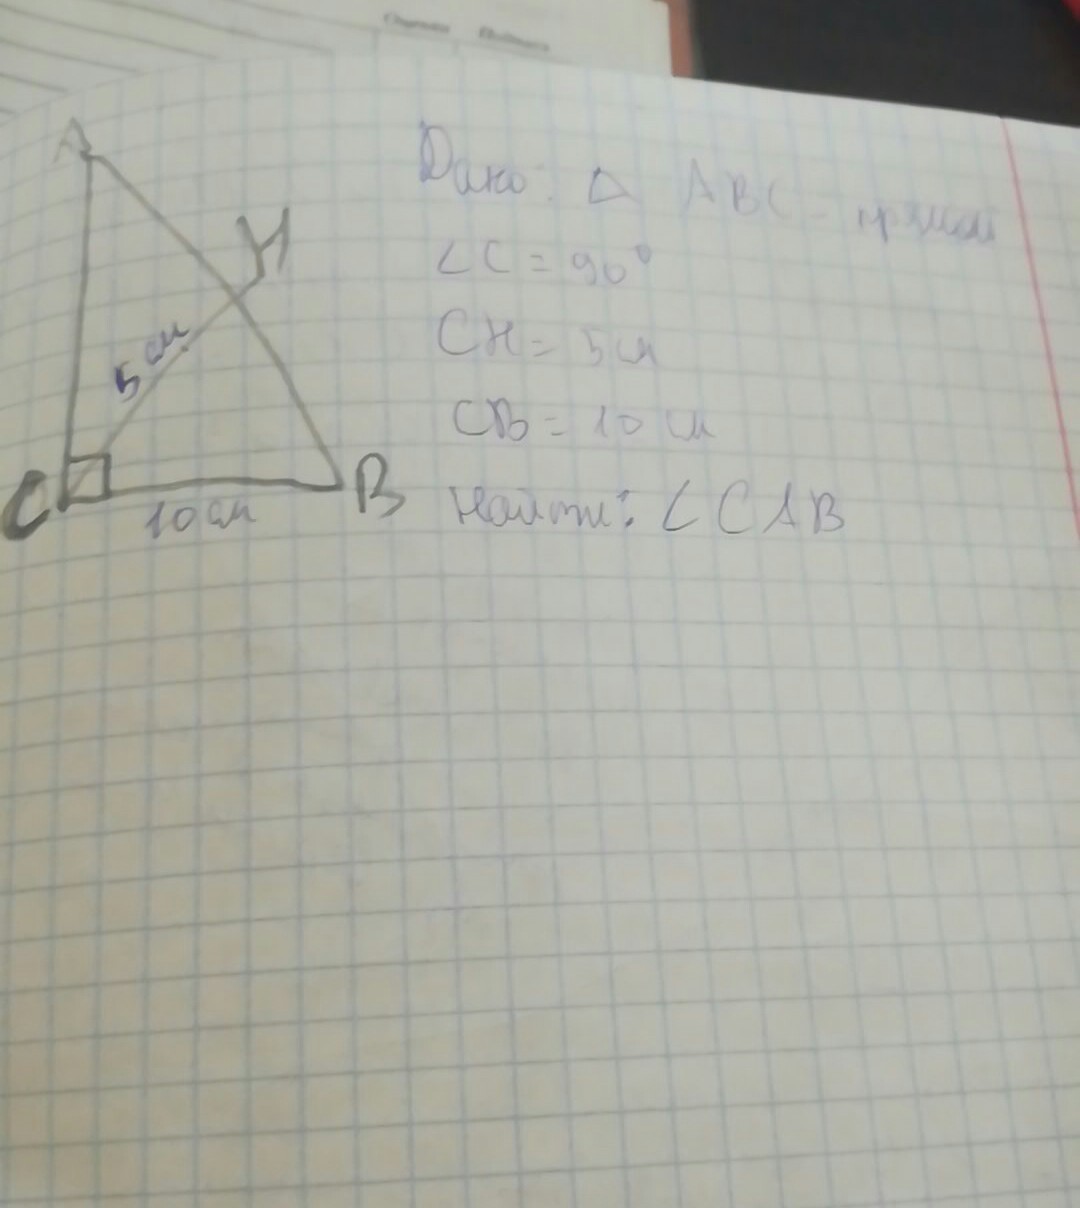 A
H
5 см
C
10 см
B
Дано: △ ABC - прямой
∠C = 90°
CH = 5 см
CB = 10 см
Найти: ∠CAB